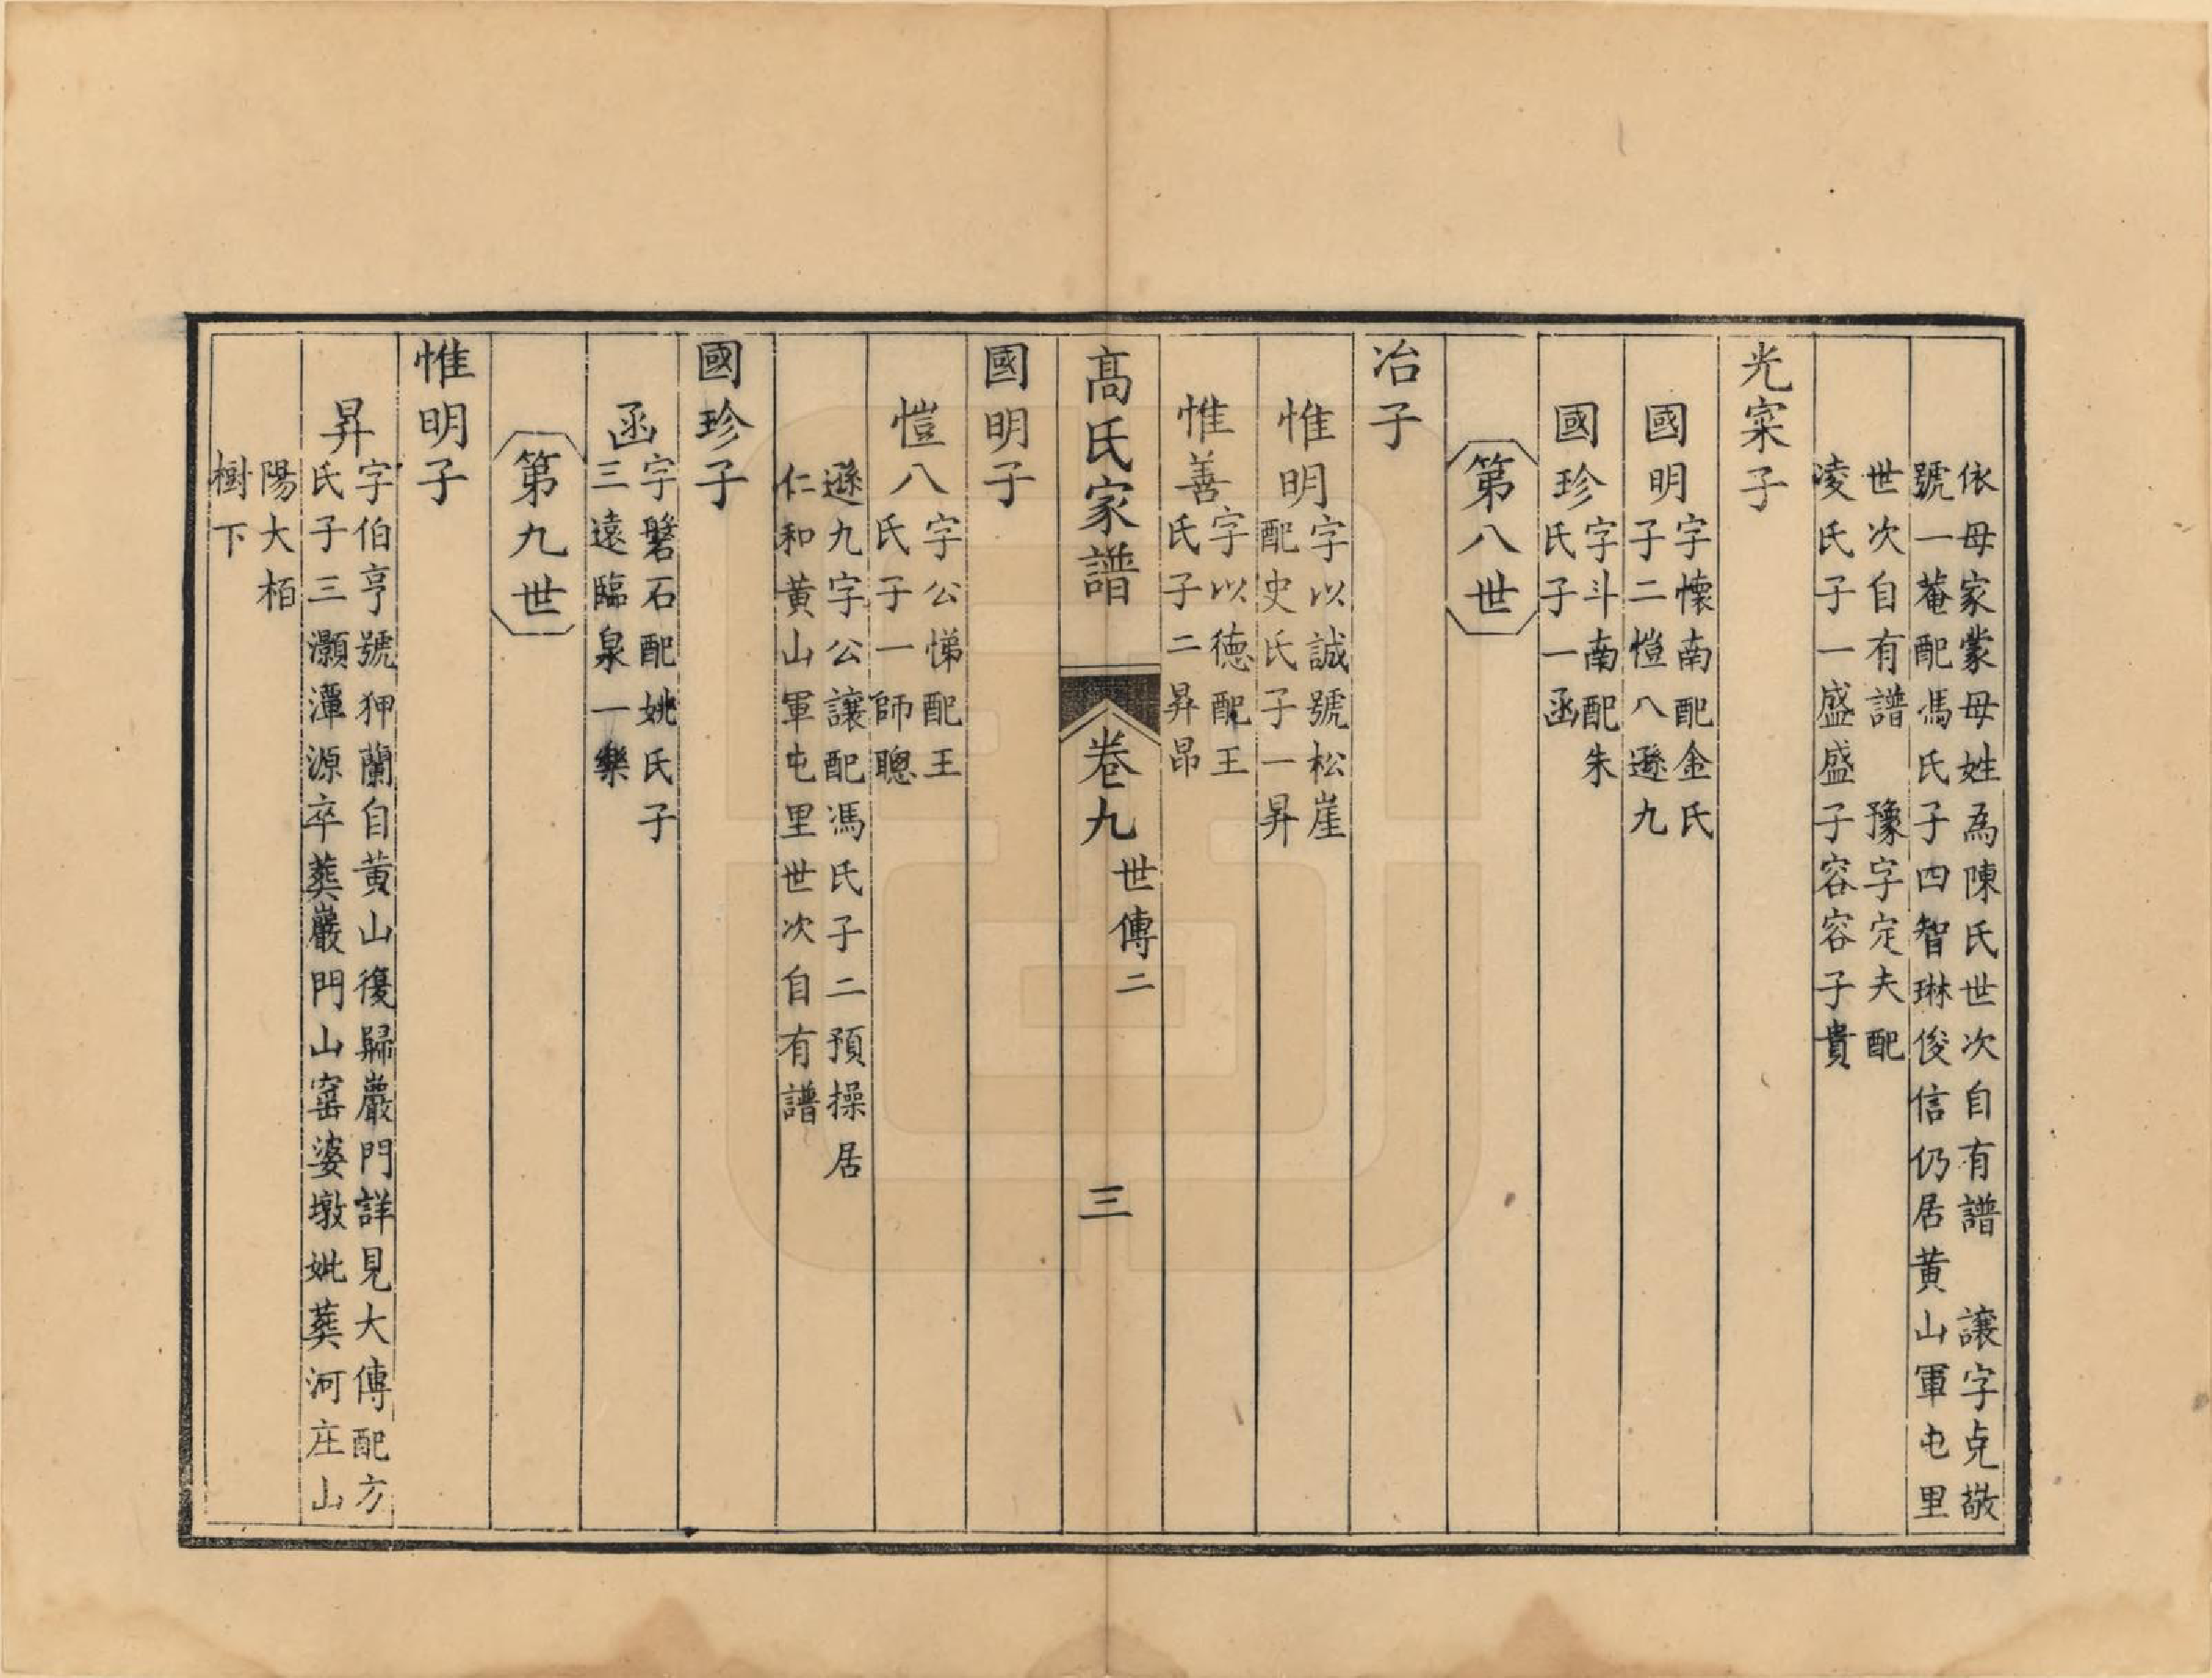 依母家蒙母姓為陳氏世次自有譜　讓字克敬
號一菴配馮氏子四智琳俊信仍居黄山軍屯里
世次自有譜　豫字定夫配
凌氏子一盛盛子容容子貴
光宷子
國明字懷南配金氏
子二愷八遜九
國珍字斗南配朱
氏子一函
第八世
冶子
惟明字以誠號松崖
配史氏子一昇
惟善字以德配王
氏子二昇昂
高氏家譜　卷九世傳二　三
國明子
愷八字公悌配王
氏子一師聰
遜九字公讓配馮氏子二預操居
仁和黄山軍屯里世次自有譜
國珍子
函字磐石配姚氏子
三遠臨泉一樂
第九世
惟明子
昇字伯亨號狎蘭自黄山復歸巖門詳見大傳配方
氏子三灝潭源卒葬巖門山窑婆墩妣葬河庄山
陽大栢
樹下